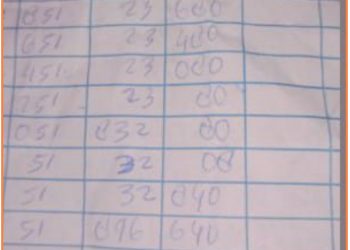 651 23 600
651 23 400
451 23 000
251 23 00
051 032 00
51 32 00
51 32 040
51 096 640